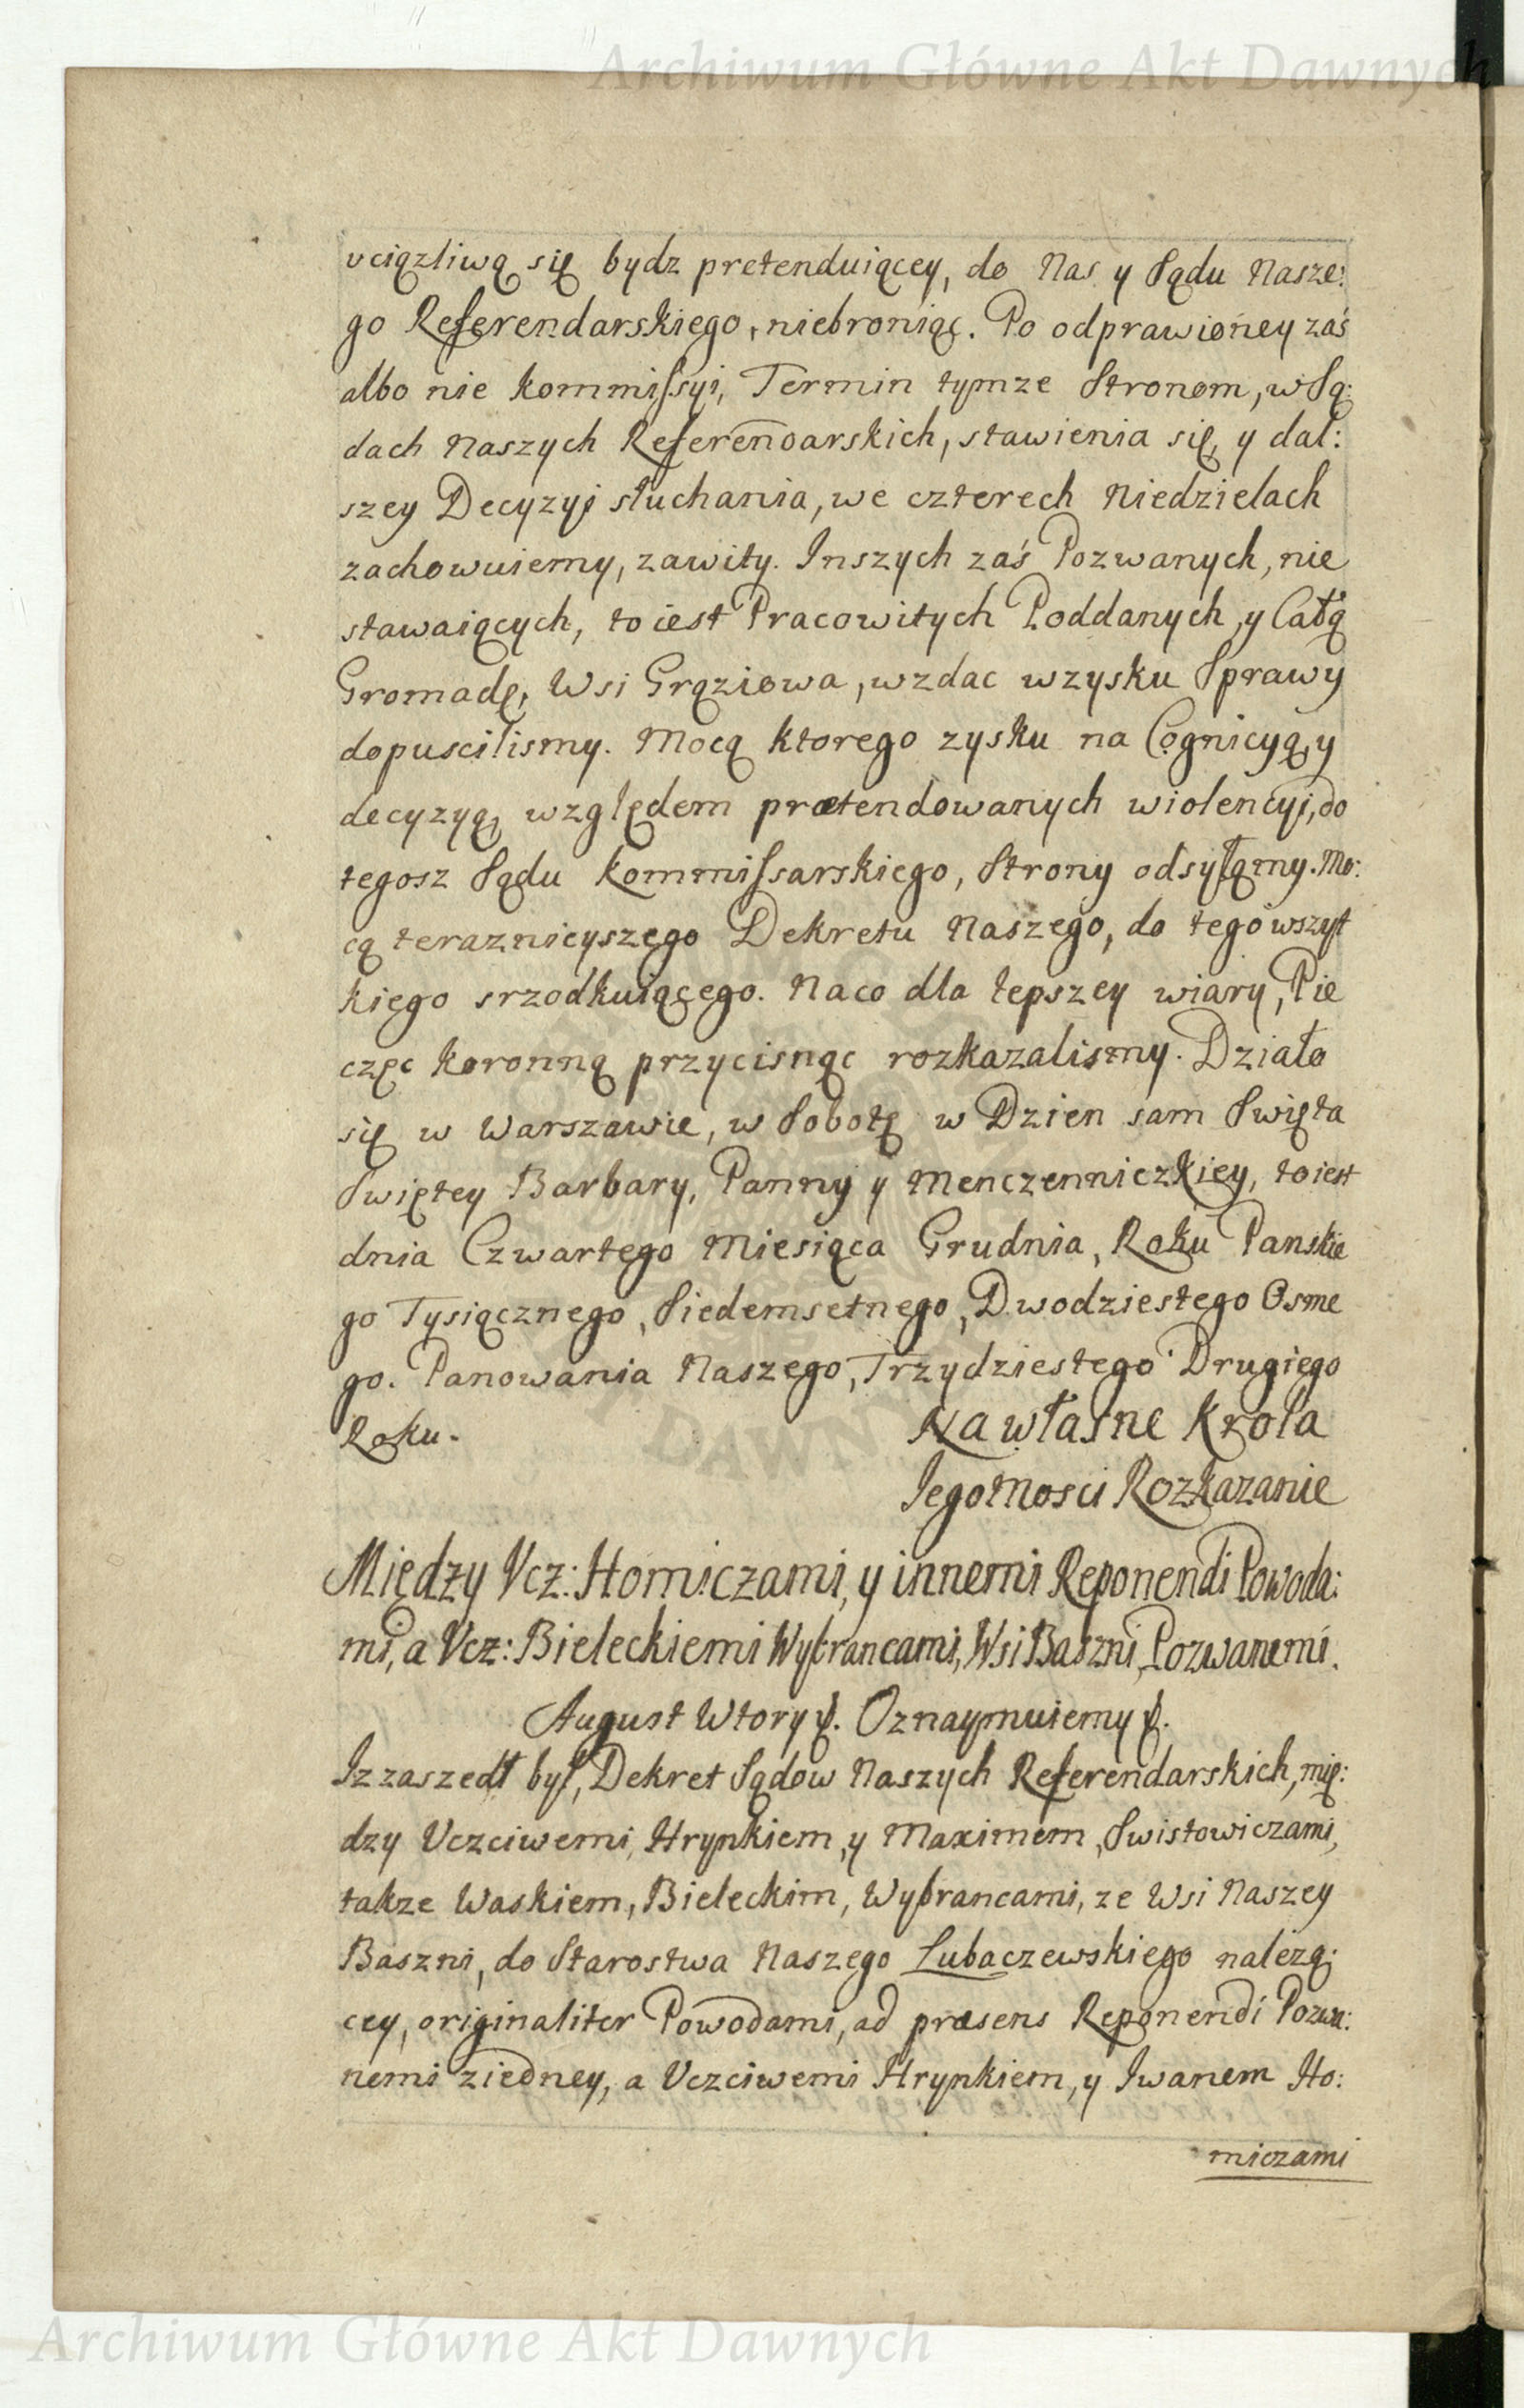 Archiwum Główne Akt Dawnych
vciązliwą się bydz pretenduiącey, do Nas y Sądu Nasze:
go Referendarskiego, niebroniąc. Po odprawioney zaś
albo nie kommissyi, Termin tymze Stronom, w Są:
dach Naszych Referendarskich, stawienia się, y dal:
szey Decyzyi słuchania, we czterech Niedzielach
zachowuiemy, zawity. Inszych zaś Pozwanych, nie
stawaiących, to iest Pracowitych Poddanych, y Całą
Gromadę, Wsi Grąziowa, wzdac wzysku Sprawy
dopuscilismy. Mocą ktorego zysku na Cognicyą, y
decyzyą, względem prætendowanych wiolencyi, do
tegosz Sądu Kommissarskiego, Strony odsyłamy. Mo:
cą teraznieyszego Dekretu Naszego, do tego wszyt
kiego srzodkuiącego. Naco dla lepszey wiary, Pie
częc koronną przycisnąc rozkazalismy. Działo
się w Warszawie, w Sobotę w Dzien sam Swięta
Swiętey Barbary, Panny y Menczenniczkiey, to iest
dnia Czwartego Miesiąca Grudnia, Roku Panskie
go Tysiącznego, Siedemsetnego, Dwodziestego Osme
go. Panowania Naszego, Trzydziestego Drugiego
Roku. Na własne Krola
Jego Mosci Rozkazanie
Między Vcz: Homiczami, y innemi Reponendi Powoda:
mi, a Vcz: Bieleckiemi Wybrancami, Wsi Baszni, Pozwanemi.
August Wtory &. Oznaymuiemy &.
Iz zaszedł był, Dekret Sądow Naszych Referendarskich, mię:
dzy Vczciwemi, Hrynkiem, y Maximem, Swistowiczami,
takze Waskiem, Bieleckim, Wybrancami, ze Wsi Naszey
Baszni, do Starostwa Naszego Lubaczewskiego nalezą:
cey, originaliter Powodami, ad præsens Reponendi Pozwa:
nemi ziedney, a Vczciwemi Hrynkiem, y Iwanem Ho:
miczami
Archiwum Główne Akt Dawnych